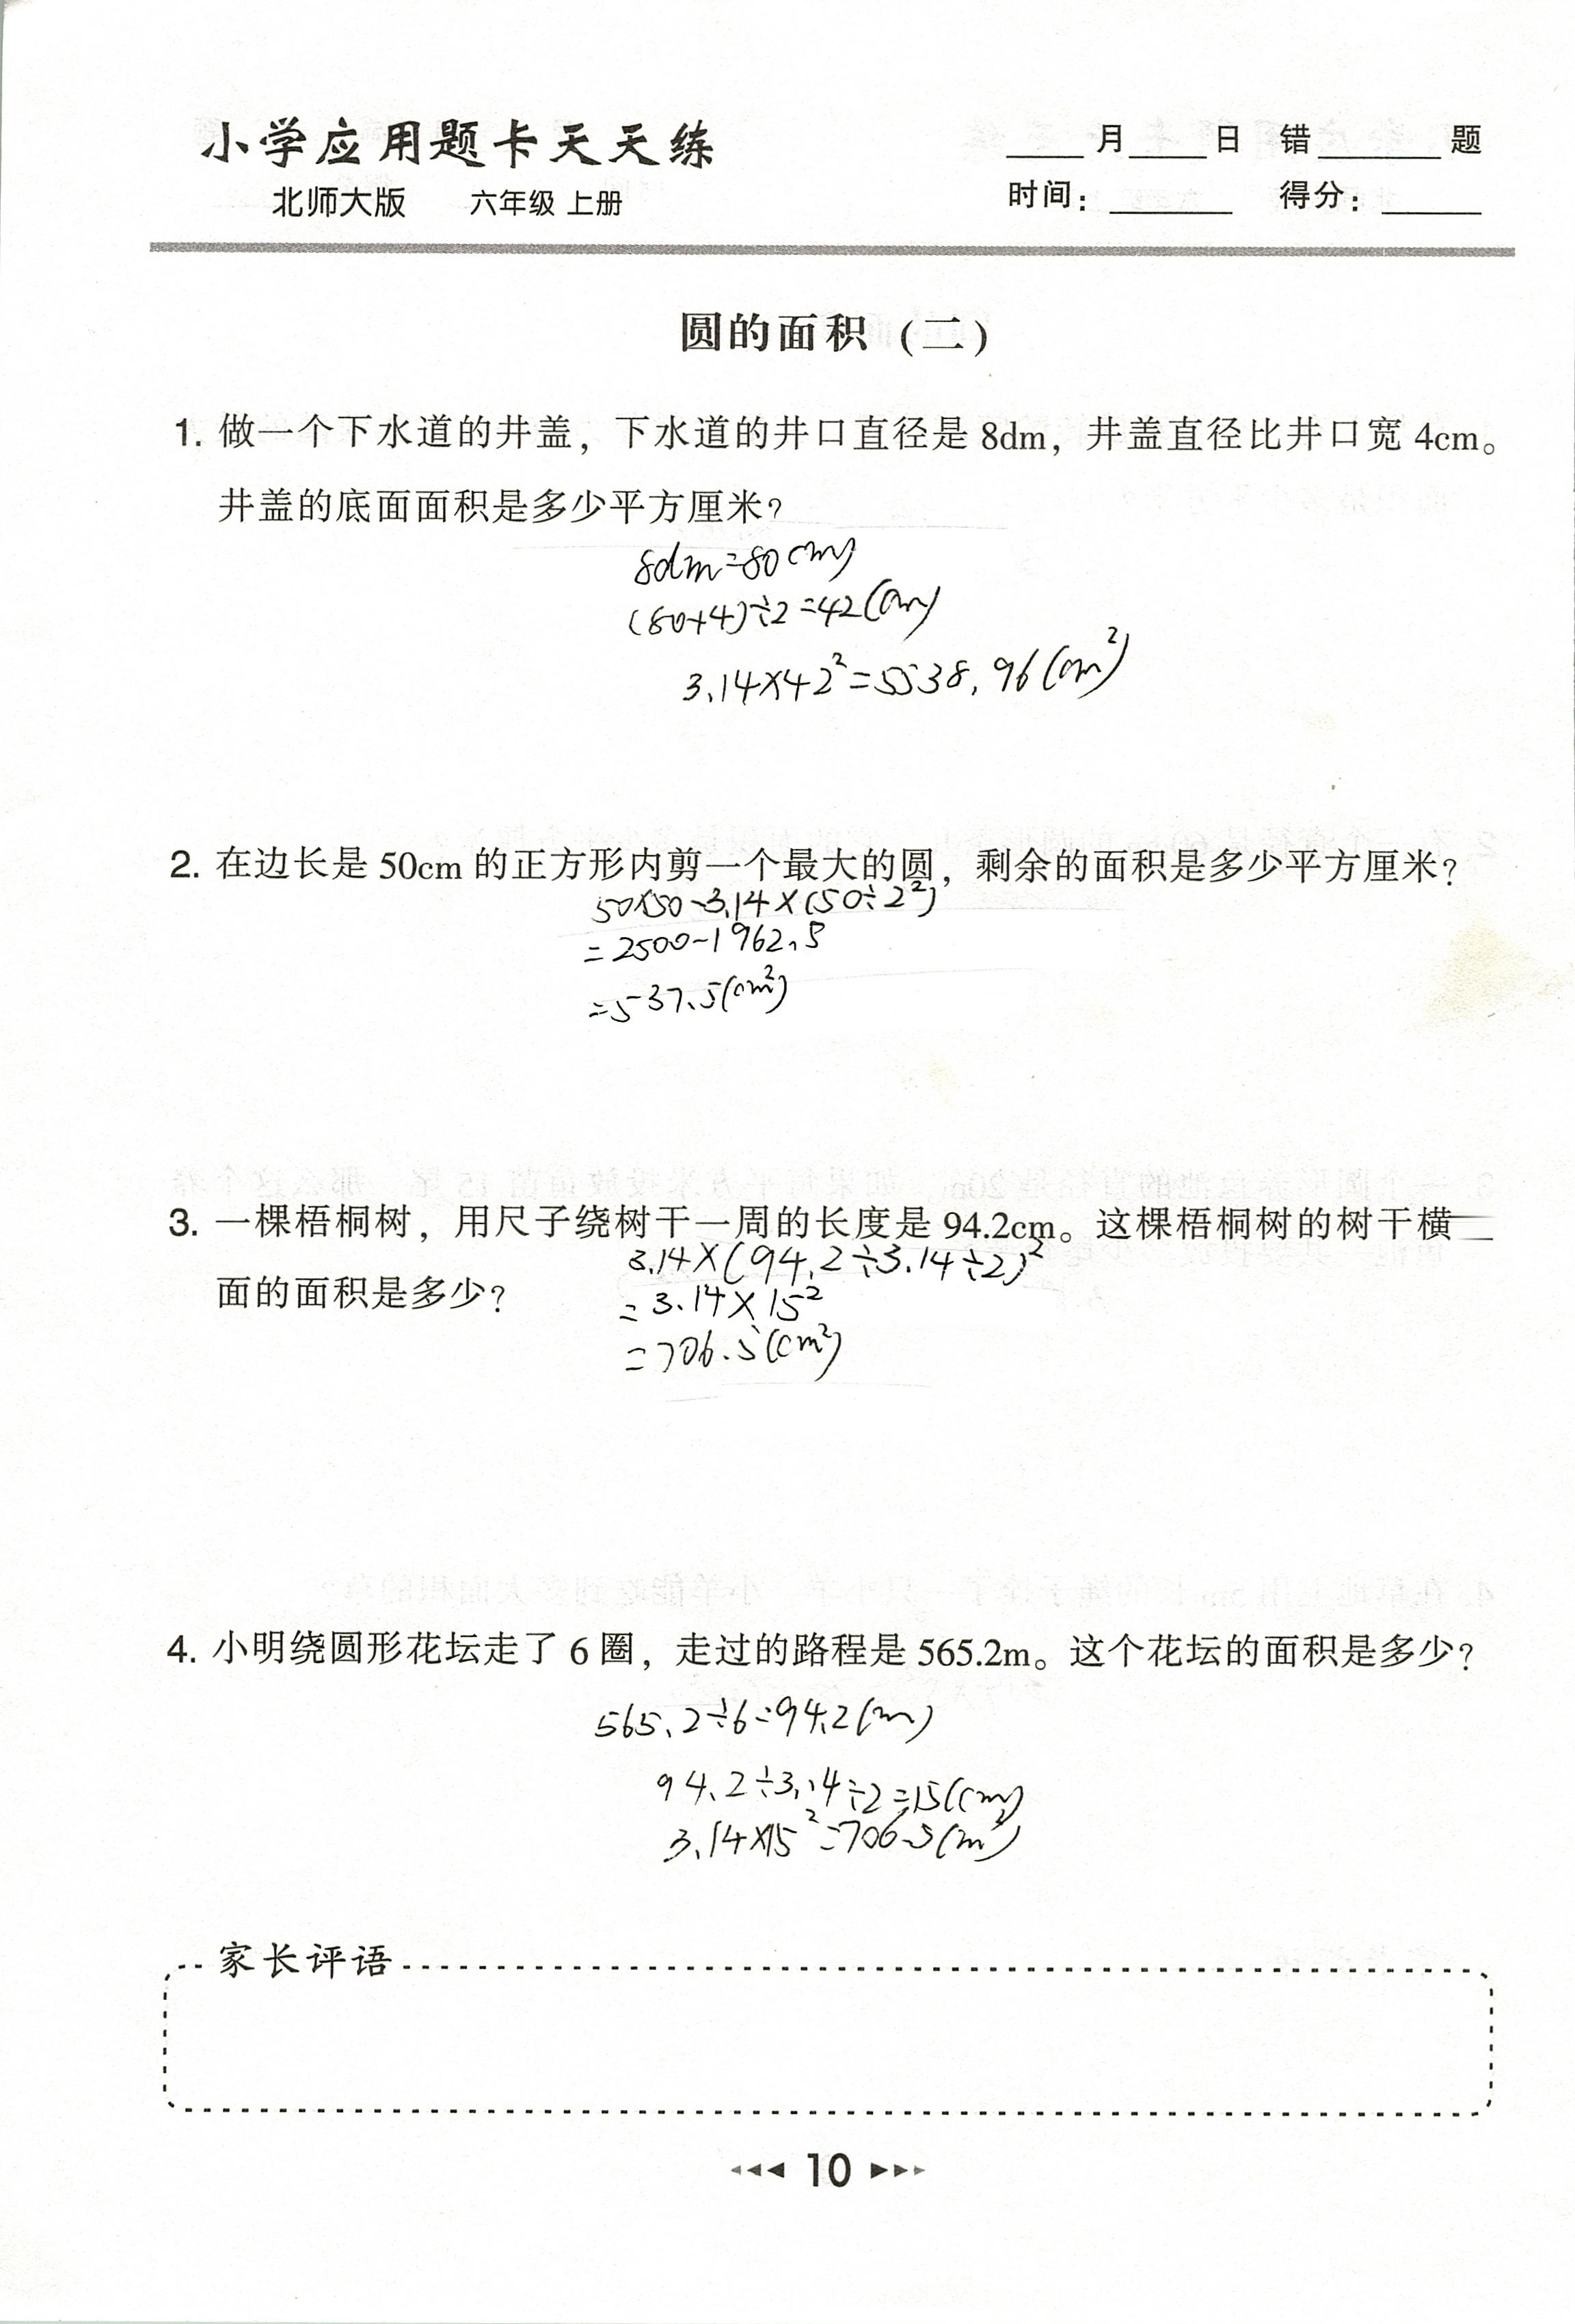 小学应用题卡天天练
北师大版 六年级 上册
____月____日 错______题
时间：______ 得分：_____
圆的面积（二）
1. 做一个下水道的井盖，下水道的井口直径是 8dm，井盖直径比井口宽 4cm。
井盖的底面面积是多少平方厘米？
8dm=80(cm)
(80+4)÷2=42(cm)
3.14×42²=5538.96(cm²)
2. 在边长是 50cm 的正方形内剪一个最大的圆，剩余的面积是多少平方厘米？
50×50-3.14×(50÷2²)
=2500-1962.5
=537.5(cm²)
3. 一棵梧桐树，用尺子绕树干一周的长度是 94.2cm。这棵梧桐树的树干横
面的面积是多少？
3.14×(94.2÷3.14÷2)²
=3.14×15²
=706.5(cm²)
4. 小明绕圆形花坛走了 6 圈，走过的路程是 565.2m。这个花坛的面积是多少？
565.2÷6=94.2(m)
94.2÷3.14÷2=15(cm)
3.14×15²=706.5(m²)
家长评语
10